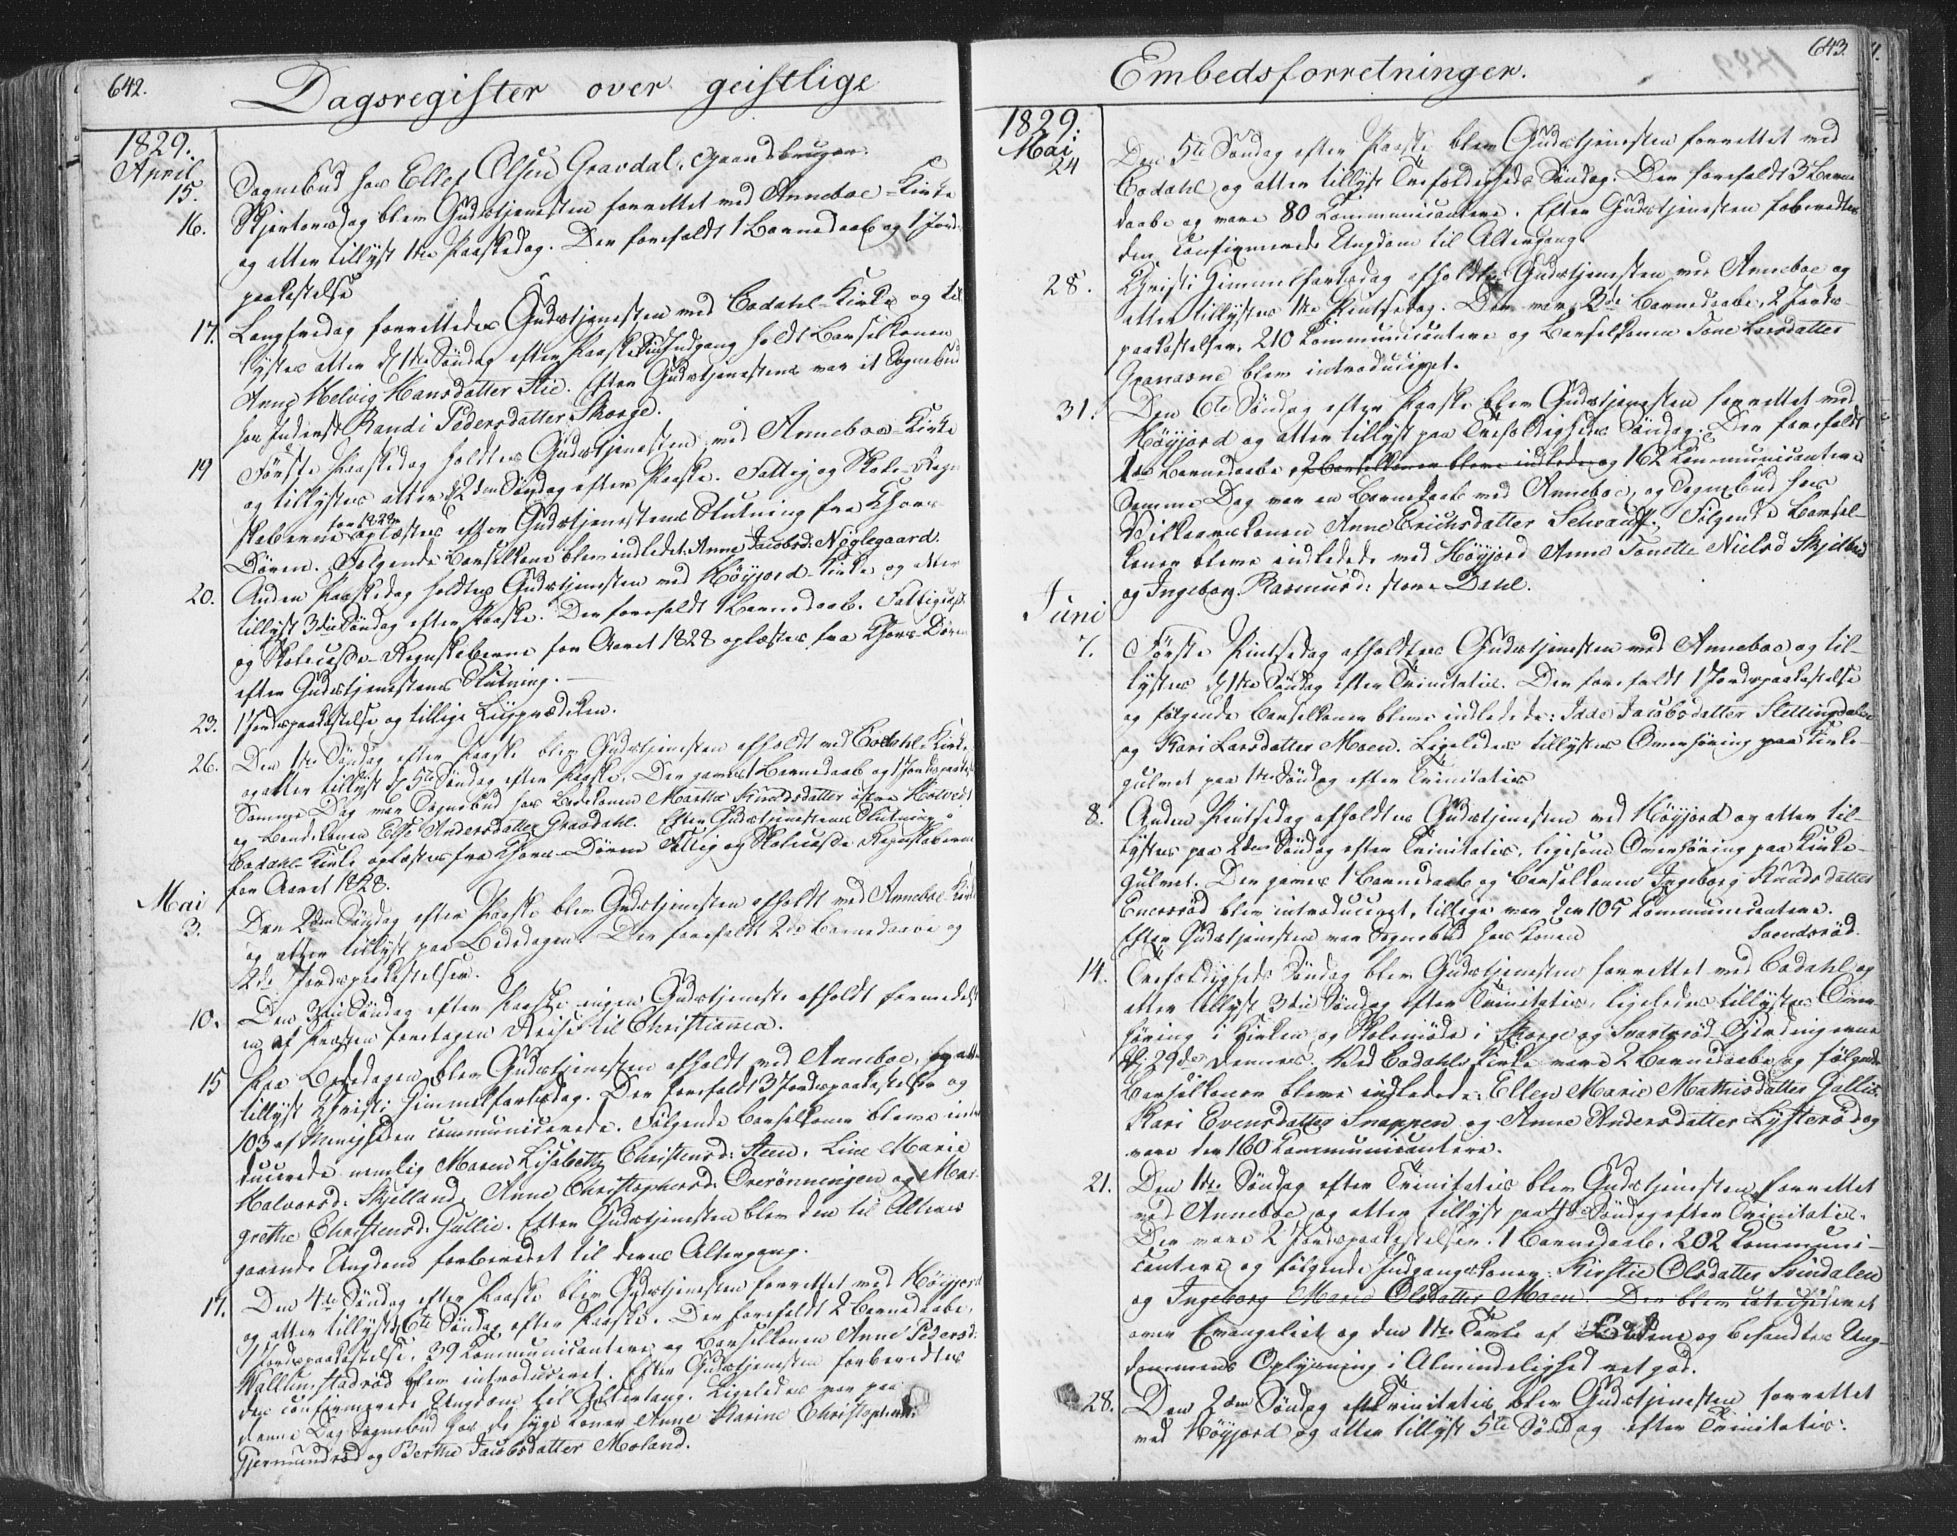 642.
Dagsregister over geistlige
1829.
April
15. Sognebud hos Ellef Olsen Gravdal, Gaardbruger.
16. Skjertorsdag blev Gudstjenesten forrettet ved Anneboe-Kirke
og atter tillyst 1ste Paaskedag. Der forefaldt 1 Barnedaab og 1 Jords-
paakastelse
17. Langfredag forrettedes Gudstjenesten ved Codahl-Kirke og til-
lystes atter d. 1ste Søndag efter Paaske. Indgang holdt Barselkonen
Anne Helvig Hansdatter Stie. Efter Gudstjenesten var et Sognebud
hos Inderst Randi Pedersdatter Skorge.
19 Første Paaskedag holdtes Gudstjenesten ved Anneboe-Kirke
og tillystes atter d. 2den Søndag efter Paaske. Fattig og Skole-Regn-
skaberne for 1828 oplæstes efter Gudstjenestens Slutning fra Chors-
Døren. Følgende Barselkone blev indledet: Anne Jacobsd: Nøglegaard.
20. Anden Paaskedag holdtes Gudstjenesten ved Høyjord-Kirke og atter
tillyst 3die Søndag efter Paaske. Der forefaldt 1 Barnedaab. Fattig
og Skolecasse-Regnskaberne for Aaret 1828 oplæstes fra Chors-Døren
efter Gudstjenestens Slutning.
23. 1 Jordspaakastelse og tillige Liigprædiken.
26. Den 1ste Søndag efter Paaske blev Gudstjenesten afholdt ved Codahl-Kirke
og atter tillyst d. 5te Søndag efter Paaske. Der gaves 1 Barnedaab og 1 Jordspaak:
Samme Dag var Sognebud hos Konen Marthe Knudsdatter østre Holvedt
og Bondekonen Else Andersdatter Gravdahl. Efter Gudstjenestens Slutning i
Codahl-Kirke oplæstes fra Chors-Døren Fattig og Skolecasse Regnskaberne
for Aaret 1828.
Mai
3. Den 2den Søndag efter Paaske blev Gudstjenesten afholdt ved Anneboe-Kirke
og atter tillyst paa Bededagen. Der forefaldt 2de Barnedaabe og
2de Jordspaakastelser.
10. Den 3die Søndag efter Paaske ingen Gudstjeneste afholdt formedelst
en af Præsten foretagen Reise til Christiania.
15 Paa Bededagen blev Gudstjenesten afholdt ved Anneboe, og atter
tillyst Christi Himmelfartsdag. Der forefaldt 3 Jordspaakastelser og
103 af Menigheden communicerede. Følgende Barselkoner bleve intro-
ducerede nemlig Maren Lisabeth Christensd: Steen, Line Marie
Halvorsd: Skjelland, Anne Christophersd: Overønningen og Mar-
grethe Christensd: Gullie. Efter Gudstjenesten blev den til Alters
gaaende Ungdom forberedet til deres Altergang.
17. Den 4de Søndag efter Paaske blev Gudstjenesten forrettet ved Høyjord
og atter tillyst 6te Søndag efter Paaske. Der forefaldt 2 Barnedaabe,
1 Jordspaakastelse, 39 Kommunicantere og Barselkonen Anne Pedersd:
Vallumstadrød blev introduceret. Efter Gudstjenesten forberedtes
den confirmerede Ungdom til Altergang. Ligeledes var paa
denne Dag Sognebud hos de syge Koner Anne Karine Christophersd:
Gjermundrød og Berthe Jacobsdatter Moland.
643.
Embedsforretninger.
1829.
Mai
24 Den 5te Søndag efter Paaske blev Gudstjenesten forrettet ved
Codahl og atter tillyst Trefoldigheds Søndag. Der forefaldt 3 Barne
daabe og vare 80 Kommunicantere. Efter Gudstjenesten forberedtes
den confirmerede Ungdom til Altergang.
28. Christi Himmelfartsdag afholdtes Gudstjenesten ved Anneboe og
atter tillystes 1ste Pintsedag. Der var 2de Barnedaabe, 2 Jords-
paakastelser, 210 Kommunicantere og Barselkonen Tone Larsdatter
Granaasne blev introduceret.
31. Den 6te Søndag efter Paaske blev Gudstjenesten forrettet ved
Høyjord og atter tillyst paa Trefoldigheds Søndag. Der forefaldt
1 Barnedaabe, 2 Barselkoner bleve indledede og 162 Kommunicantere
Samme Dag var en Barnedaab ved Anneboe, og Sognebud hos
Vilkaarskonen Anne Erichsdatter Selvaag. Følgende Barsel-
koner bleve indledede ved Høyjord Anne Tonette Nielsd Skjelbred
og Ingeborg Rasmusd: store Dahl.
Juni
7. Første Pintsedag afholdtes Gudstjenesten ved Anneboe og til-
lystes d. 1ste Søndag efter Trinitatis. Der forefaldt 1 Jordspaakastelse
og følgende Barselkoner bleve indledede: Inde Jacobsdatter Slettingdalen
og Kari Larsdatter Moen. Ligeledes tillystes Overhøring paa Kirke-
gulvet paa 1ste Søndag efter Trinitatis
8. Anden Pintsedag afholdtes Gudstjenesten ved Høyjord og atter til-
lystes paa 2den Søndag efter Trinitatis, ligesom Overhøring paa Kirke-
Gulvet. Der gaves 1 Barnedaab og Barselkonen Ingeborg Knudsdatter
Enersrød blev introduceret, tillige var der 105 Kommunicantere.
Efter Gudstjenesten var Sognebud hos Konen Svendsrød.
14. Trefoldigheds Søndag blev Gudstjenesten forrettet ved Codahl og
atter tillyst 3die Søndag efter Trinitatis, ligeledes tillystes Over-
høring i Kirken og Skolemøde i Skorge og Svartsrød Fjerdingerne
d. 29de dennes. Ved Codahls Kirke vare 2 Barnedaabe og følgende
Barselkoner bleve indledede: Ellen Marie Mathisdatter Gallis,
Kari Evensdatter Snappen og Anne Andersdatter Lysterød og
vare der 160 Kommunicantere.
21. Den 1ste Søndag efter Trinitatis blev Gudstjenesten forrettet
ved Anneboe og atter tillyst paa 4de Søndag efter Trinitatis.
Der vare 2 Jordspaakastelser. 1 Barnedaab, 202 Kommuni-
cantere og følgende Indgangskoner: Kirstie Olsdatter Svindalen
og Ingeborg Marie Olsdatter Moen. Der blev catechiseret
over Evangeliet og den 1ste Parte af Lærdom og befandtes Ung-
dommens Oplysning i Almindelighed ret god.
28. Den 2den Søndag efter Trinitatis blev Gudstjenesten forrettet
ved Høyjord og atter tillyst 5te Søndag efter Trinitatis: